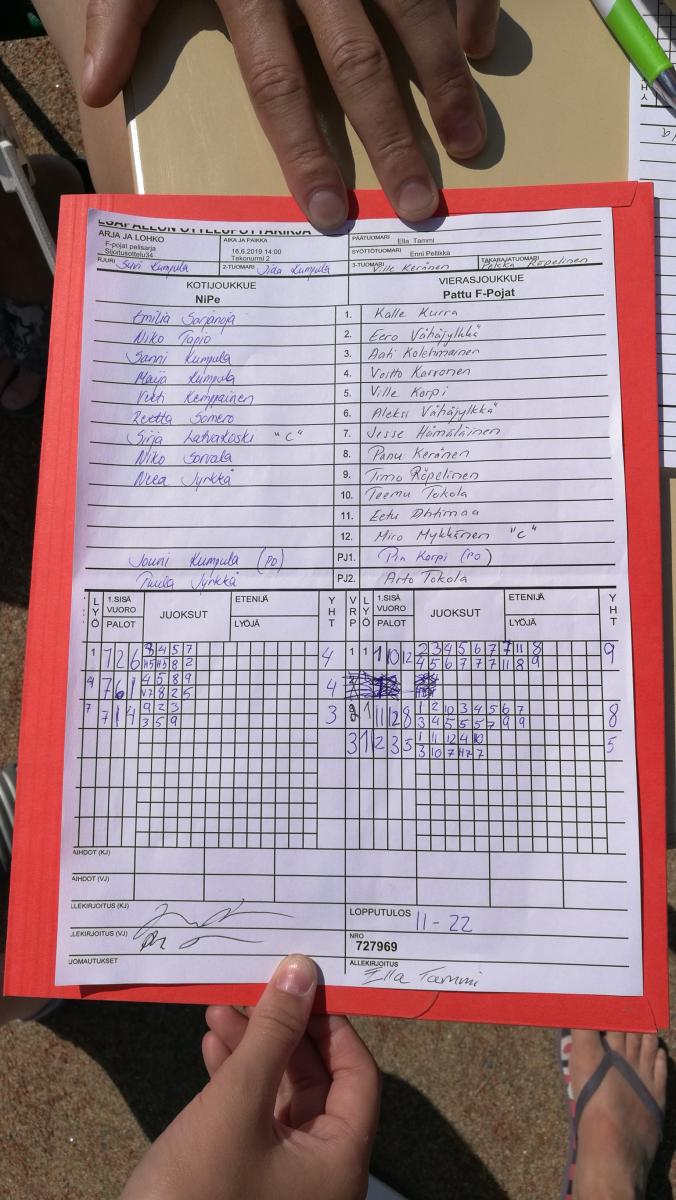 ESAPALLON OTTELUPÖYTÄKIRJA
ARJA JA LOHKO
F-pojat pelisarja
Sijoitusottelu34
AIKA JA PAIKKA
16.6.2019 14:00
Tekonurmi 2
PÄÄTUOMARI Ella Tammi
SYÖTTÖTUOMARI Enni Pelikka
RJURI Suvi Kumpula 2-TUOMARI Jida Kumpula 3-TUOMARI Ville Keränen TAKARAJATUOMARI Pekka Röpelinen
KOTIJOUKKUE VIERASJOUKKUE
NiPe Pattu F-Pojat
Emilia Sarjanoja 1. Kalle Kurra
Niko Tapio 2. Eero Vähäjylkkä
Sanni Kumpula 3. Aati Kolehmainen
Maija Kumpula 4. Voitto Karronen
Veeti Kemppainen 5. Ville Korpi
Reetta Somero 6. Aleksi Vähäjylkkä
Sirja Latvakoski "C" 7. Jesse Hämäläinen
Niko Sorvala 8. Panu Keränen
Neea Jyrkkä 9. Timo Röpelinen
10. Teemu Tokola
11. Eetu Ahtimaa
12. Miro Mykkänen "C"
Jouni Kumpula (PO) PJ1. Pia Korpi (PO)
Tuula Jyrkkä PJ2. Arto Tokola
LYÖ 1.SISÄ VUORO PALOT JUOKSUT ETENIJÄ LYÖJÄ YHT VRP LYÖ 1.SISÄ VUORO PALOT JUOKSUT ETENIJÄ LYÖJÄ YHT
1 7 2 6 8 4 5 7 4 1 1 1 10 12 2 3 4 5 6 7 7 11 8 9
8 2 4 5 6 7 7 7 11 8 9
4 7 6 1 4 5 8 9 4
8 2 5
7 7 1 4 9 2 3 3 1 11 12 8 1 2 10 3 4 5 6 7 8
3 5 9 3 4 5 5 5 7 9 9
3 1 12 3 5 1 11 12 4 10 5
3 10 7 7
AIHDOT (KJ)
AIHDOT (VJ)
LLEKIRJOITUS (KJ) LOPPUTULOS 11 - 22
LLEKIRJOITUS (VJ) NRO
727969
UOMAUTUKSET ALLEKIRJOITUS
Ella Tammi